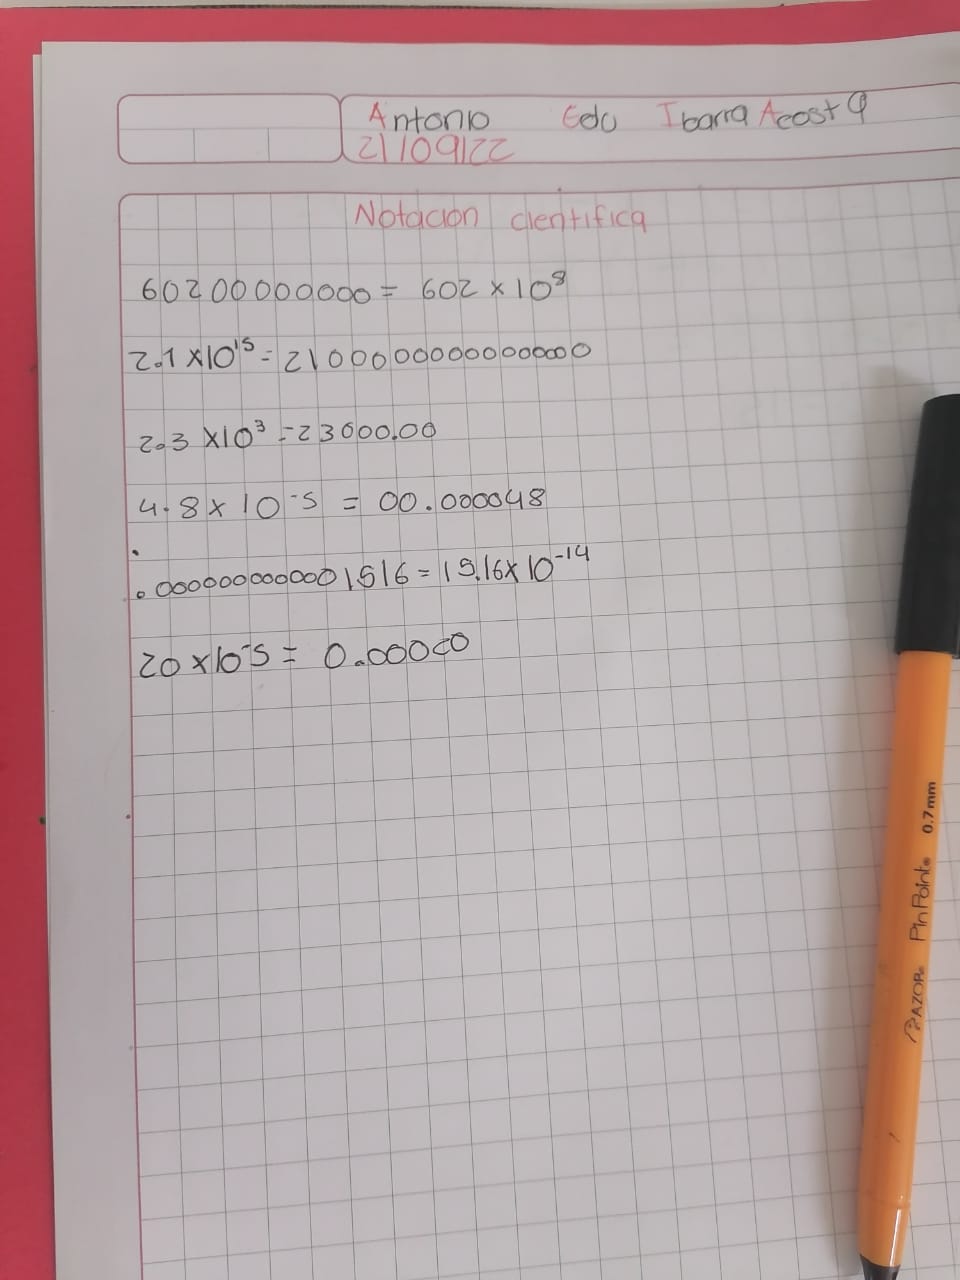 Antonio Edu Ibarra Acosta
21/09/22
Notacion cientifica
60200000000= 602 x 10⁸
2.1 x10¹⁵=2100000000000000
2.3 x10³ =23000.00
4.8 x 10⁻⁵ = 00.000048
.0000000000001516=15.16x10⁻¹⁴
20 x10⁻⁵= 0.00000
AZOR Pin Point 0.7mm